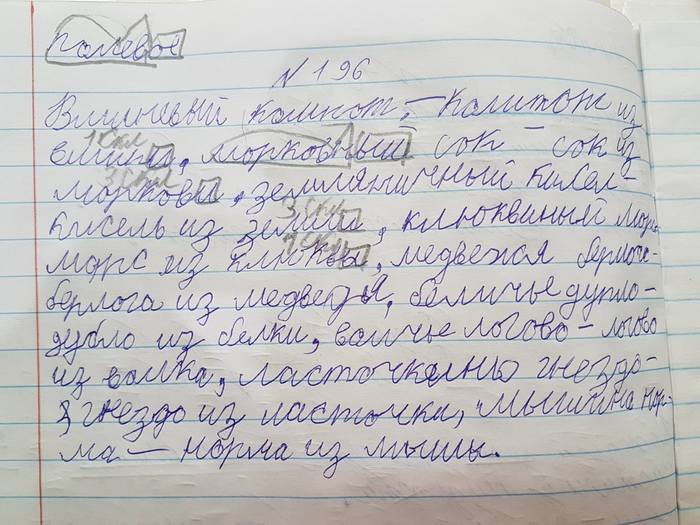 полевое
N 196
Вишнёвый компот, – компот из
1 скл
вишни, морковный сок – сок из
3 скл
моркови, земляничный кисел-
3 скл
кисель из земли, клюквиный морс
1 скл
морс из клюквы, медвежая берлога-
берлога из медведя, беличье дупло-
дубло из белки, волчье логово – логово
из волка, ласточкины гнездо-
гнездо из ласточки, мышина нор-
ма – норма из мышы.